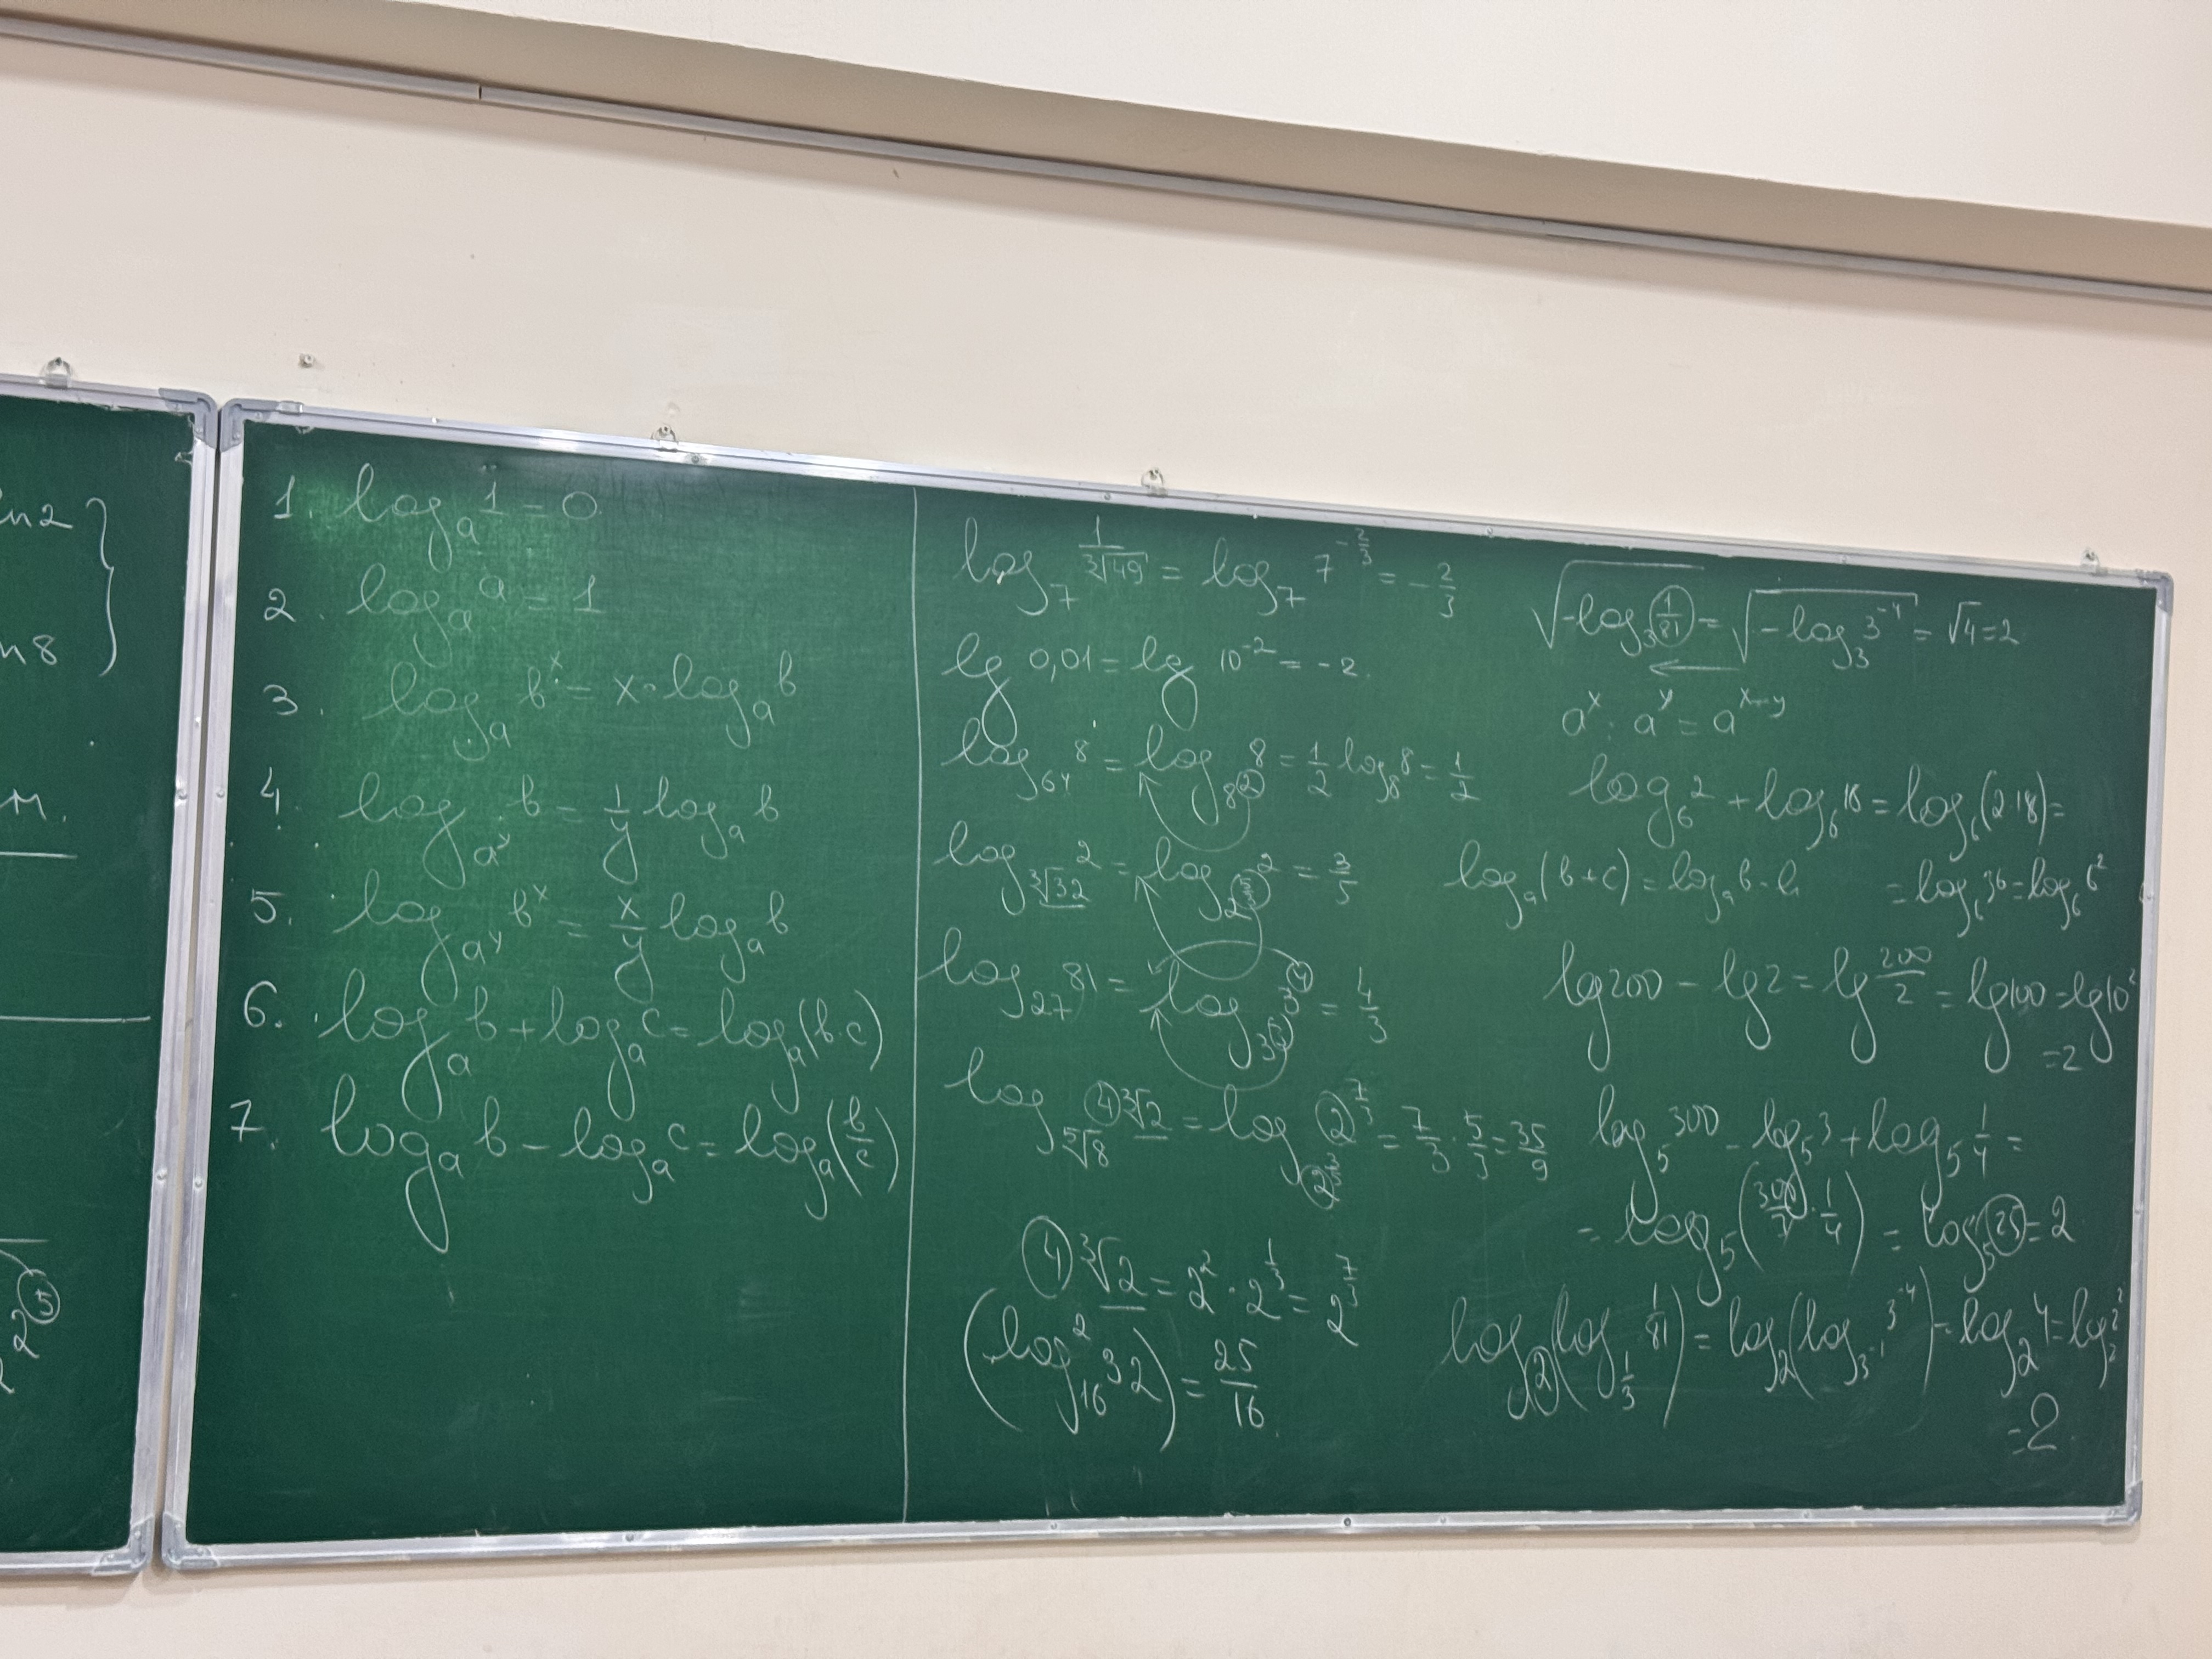 in2
n8
м.
2⁵
1. logₐ 1 = 0
2. logₐ a = 1
3. logₐ bˣ = x · logₐ b
4. log_{aʸ} b = 1/y logₐ b
5. log_{aʸ} bˣ = x/y logₐ b
6. logₐ b + logₐ c = logₐ (b·c)
7. logₐ b − logₐ c = logₐ (b/c)
log₇ 1/∛49 = log₇ 7^{-2/3} = −2/3
lg 0,01 = lg 10⁻² = −2.
log₆₄ 8 = log_{8²} 8 = 1/2 log₈ 8 = 1/2
log_{∛32} 2 = log_{2^{5/3}} 2 = 3/5
log₂₇ 81 = log_{3³} 3⁴ = 4/3
log_{⁵√8} 4∛2 = log_{2^{3/5}} 2^{7/3} = 7/3 · 5/3 = 35/9
4∛2 = 2² · 2^{1/3} = 2^{7/3}
(log²₁₆ 32) = 25/16
√(−log₃ 1/81) = √(−log₃ 3⁻⁴) = √4 = 2
aˣ : aʸ = aˣ⁻ʸ
log₆ 2 + log₆ 18 = log₆ (2·18) =
= log₆ 36 = log₆ 6²
logₐ (b+c) = logₐ b ·
lg 200 − lg 2 = lg 200/2 = lg 100 = lg 10²
= 2
log₅ 300 − log₅ 3 + log₅ 1/4 =
= log₅ (300/3 · 1/4) = log₅ 25 = 2
log₂ (log_{1/3} 1/81) = log₂ (log_{3⁻¹} 3⁻⁴) = log₂ 4 = log₂ 2²
= 2.